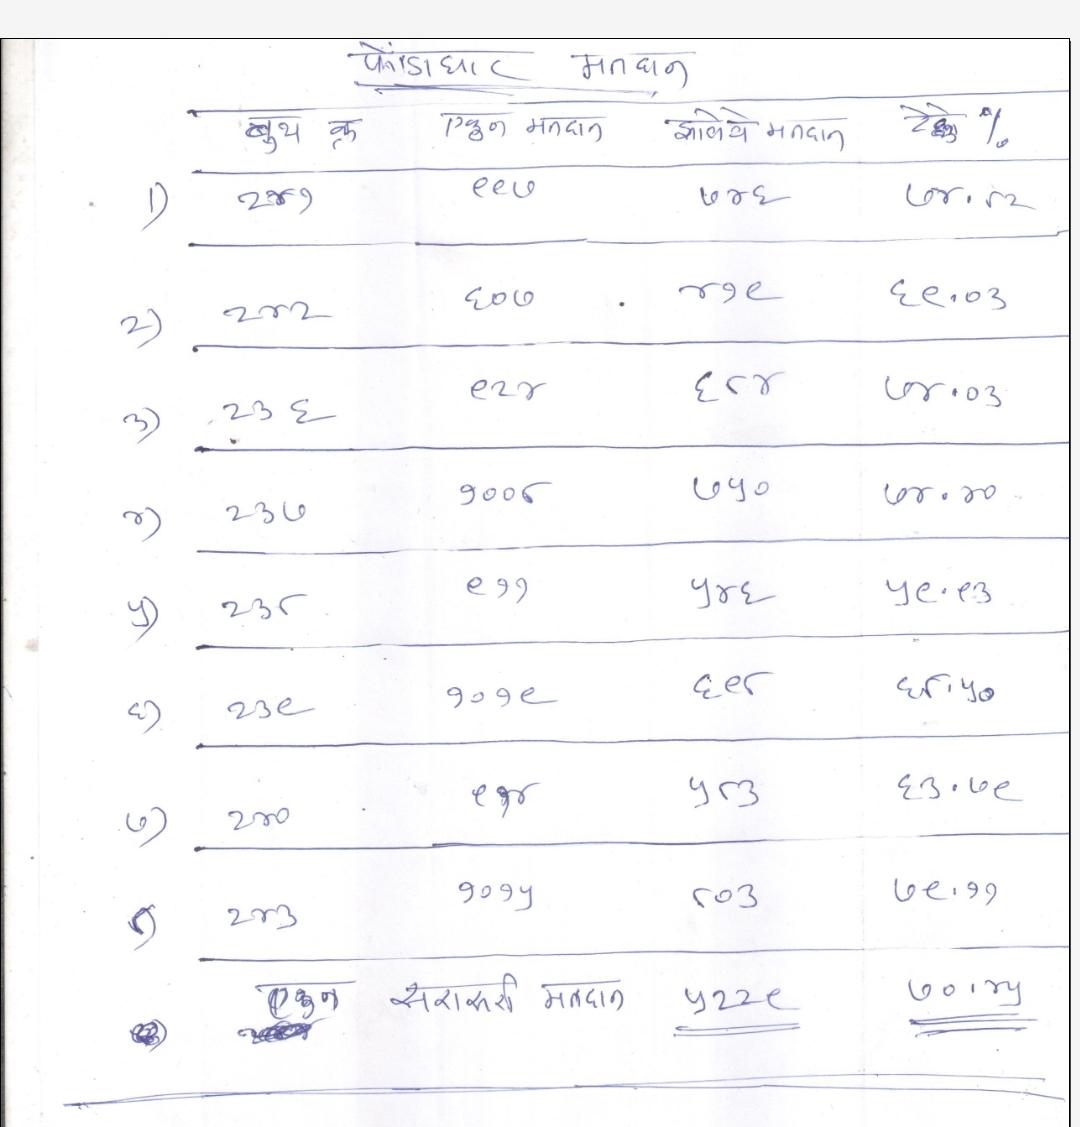 फोंडाघाट मतदान
बुथ क्र एकुन मतदान झालेये मतदान टक्के %
1) २४१ ९९७ ७४६ ७४.८२
२) २४२ ६०७ ४१९ ६९.०३
३) २३६ ९२४ ६८४ ७४.०३
४) २३७ १००८ ७५० ७४.४०
५) २३८ ९११ ५४६ ५९.९३
६) २३९ १०१९ ६९८ ६८.५०
७) २४० ९१४ ५८३ ६३.७९
८) २४३ १०१५ ८०३ ७९.११
एकुन सरासरी मतदान ५२२९ ७०.४५